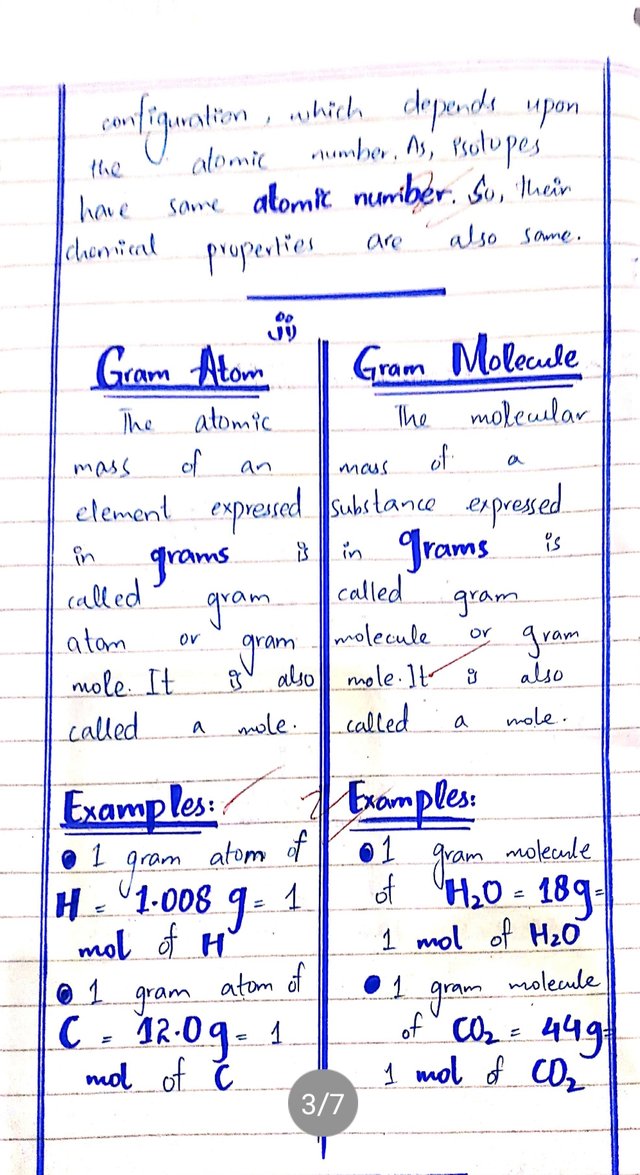 configuration, which depends upon
the atomic number. As, isotopes
have same atomic number. So, their
chemical properties are also same.
(ii)
Gram Atom
The atomic
mass of an
element expressed
in grams is
called gram
atom or gram
mole. It is also
called a mole.
Examples:
• 1 gram atom of
H = 1.008 g = 1
mol of H
• 1 gram atom of
C = 12.0 g = 1
mol of C
Gram Molecule
The molecular
mass of a
substance expressed
in grams is
called gram
molecule or gram
mole. It is also
called a mole.
Examples:
• 1 gram molecule
of H₂O = 18g =
1 mol of H₂O
• 1 gram molecule
of CO₂ = 44g =
1 mol of CO₂
3/7